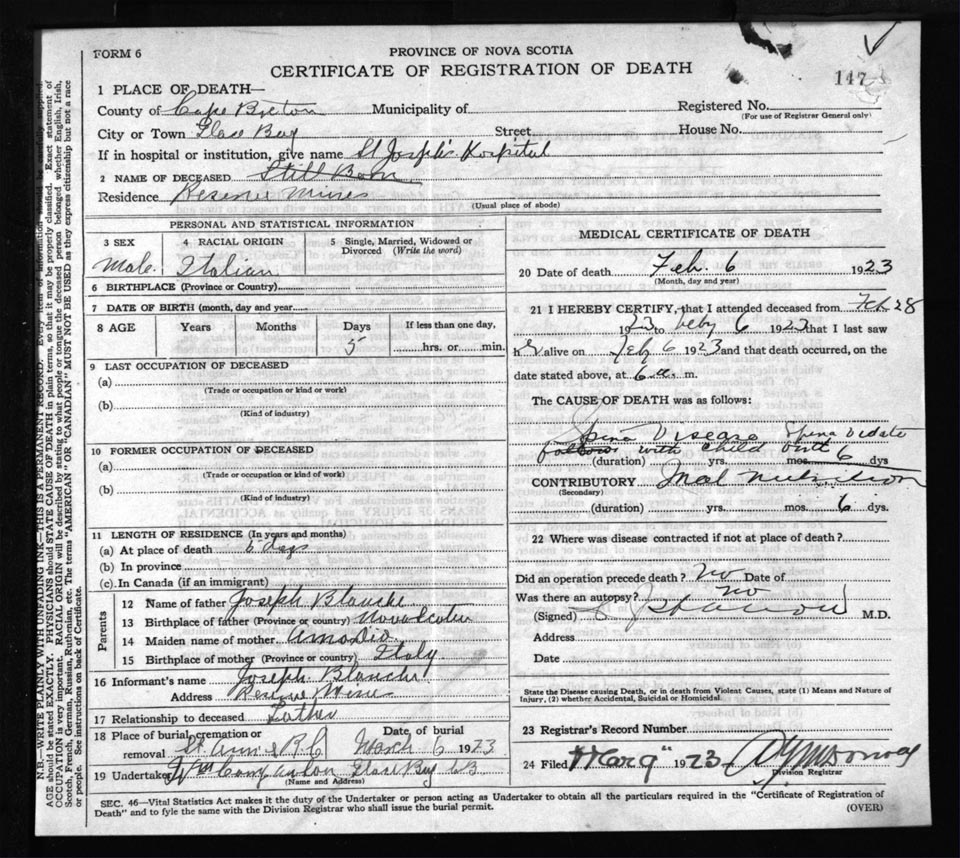 FORM 6
PROVINCE OF NOVA SCOTIA
CERTIFICATE OF REGISTRATION OF DEATH
147
1 PLACE OF DEATH—
County of Cape Breton Municipality of Registered No.
(For use of Registrar General only)
City or Town Glace Bay Street House No.
If in hospital or institution, give name St Joseph's Hospital
2 NAME OF DECEASED Still Born
Residence Reserve Mines
(Usual place of abode)
PERSONAL AND STATISTICAL INFORMATION
3 SEX 4 RACIAL ORIGIN 5 Single, Married, Widowed or Divorced (Write the word)
Male. Italian
6 BIRTHPLACE (Province or Country)
7 DATE OF BIRTH (month, day and year)
8 AGE Years Months Days If less than one day,
5 hrs. or min.
9 LAST OCCUPATION OF DECEASED
(a)
(Trade or occupation or kind or work)
(b)
(Kind of industry)
10 FORMER OCCUPATION OF DECEASED
(a)
(Trade or occupation or kind of work)
(b)
(Kind of industry)
11 LENGTH OF RESIDENCE (In years and months)
(a) At place of death 5 days
(b) In province
(c) In Canada (if an immigrant)
Parents
12 Name of father Joseph Blanche
13 Birthplace of father (Province or country) Nova Scotia
14 Maiden name of mother Amadio
15 Birthplace of mother (Province or country) Italy
16 Informant's name Joseph Blanche
Address Reserve Mines
17 Relationship to deceased Father
18 Place of burial, cremation or removal St. Anne's R.C Date of burial March 6 1923
19 Undertaker Glace Bay CB
(Name and Address)
MEDICAL CERTIFICATE OF DEATH
20 Date of death Feb. 6 1923
(Month, day and year)
21 I HEREBY CERTIFY, that I attended deceased from Feb 28
1923 to Feby 6 1923 that I last saw
h alive on Feby 6 1923 and that death occurred, on the
date stated above, at 6 a. m.
The CAUSE OF DEATH was as follows:
Spina Disease Spina
with child birth
(duration) yrs. mos. 6 dys
CONTRIBUTORY Mal Nutrition
(Secondary)
(duration) yrs. mos. 6 dys.
22 Where was disease contracted if not at place of death?
Did an operation precede death? No Date of
Was there an autopsy? No
(Signed) M.D.
Address
Date
State the Disease causing Death, or in death from Violent Causes, state (1) Means and Nature of
Injury, (2) whether Accidental, Suicidal or Homicidal.
23 Registrar's Record Number
24 Filed Mar 9" 1923
Division Registrar
SEC. 46—Vital Statistics Act makes it the duty of the Undertaker or person acting as Undertaker to obtain all the particulars required in the "Certificate of Registration of
Death" and to fyle the same with the Division Registrar who shall issue the burial permit. (OVER)
N.B.—WRITE PLAINLY WITH UNFADING INK—THIS IS A PERMANENT RECORD. Every item of information should be carefully supplied.
AGE should be stated EXACTLY. PHYSICIANS should STATE CAUSE OF DEATH in plain terms, so that it may be properly classified. Exact statement of
OCCUPATION is very important. RACIAL ORIGIN will be described by stating to what people or tongue the deceased person belonged whether English, Irish,
Scotch, French, German, Russian, Ruthenian, etc. The terms "AMERICAN" OR "CANADIAN" MUST NOT BE USED as they express citizenship but not a race
or people. See instructions on back of Certificate.